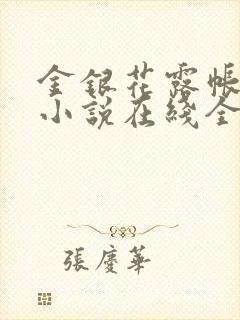 金銀花露帳
小說在綫全
張慶華